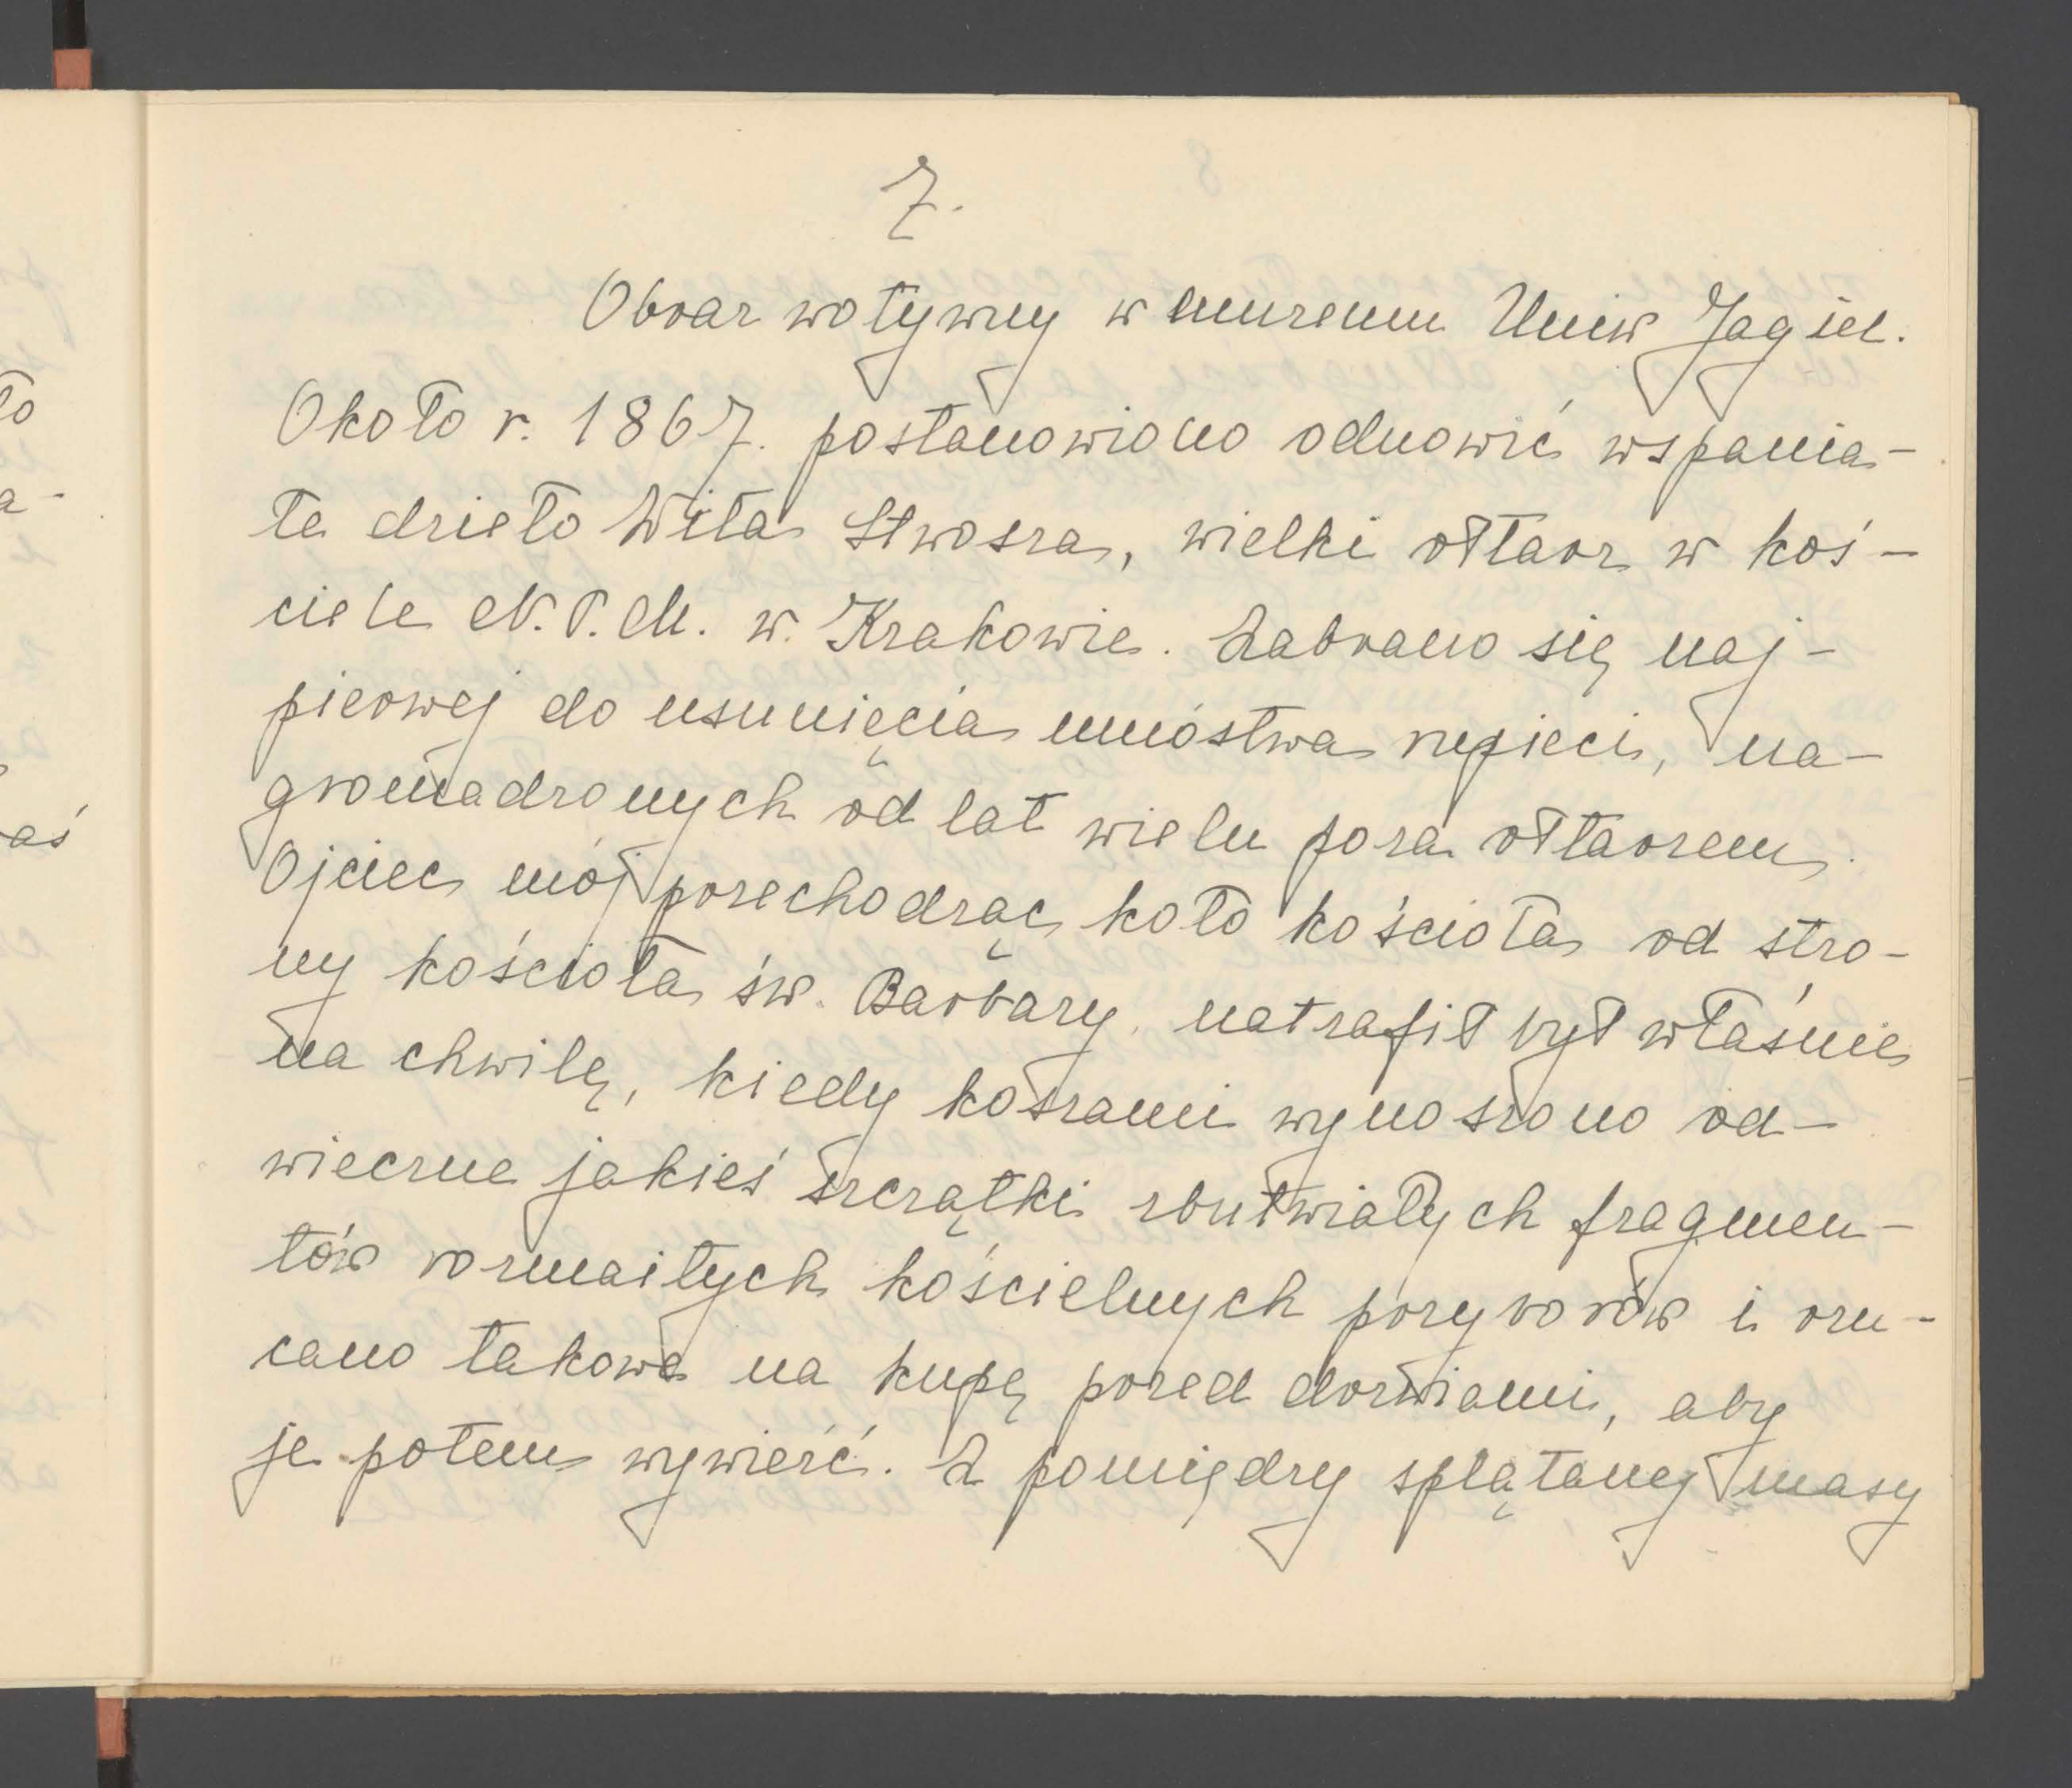 7.
Obraz wotywny w muzeum Uniw Jagiel.
Około r. 1867. postanowiono odnowić wspania-
łe dzieło Wita Stwosza, wielki ołtarz w koś-
ciele N.P.M. w. Krakowie. Zabrano się naj-
pierwej do usunięcia mnóstwa rupieci, na-
gromadzonych od lat wielu poza ołtarzem.
Ojciec mój przechodząc koło kościoła od stro-
ny kościoła św. Barbary, natrafił był właśnie
na chwilę, kiedy koszami wynoszono od-
wieczne jakieś szczątki zbutwiałych fragmen-
tów rozmaitych kościelnych przyborów i rzu-
cano takowe na kupę przed drzwiami, aby
je potem wywieźć. Z pomiędzy splątanej masy
to
a-
aś